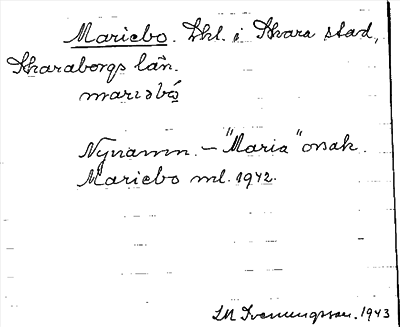 Mariebo. Lhl. i Skara stad,
Skaraborgs län.
mariəbó
Nynamn. – "Maria" osak.
Mariebo ml. 1942.
LM Svenungsson. 1943